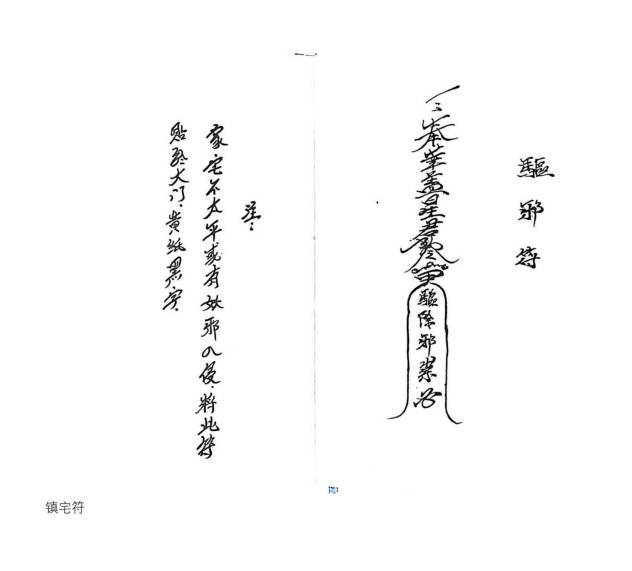 驅邪符
奉華盖星君
驅除邪祟
注:
家宅不太平或有妖邪入侵,将此符
貼於大门,黄纸黑字
镇宅符